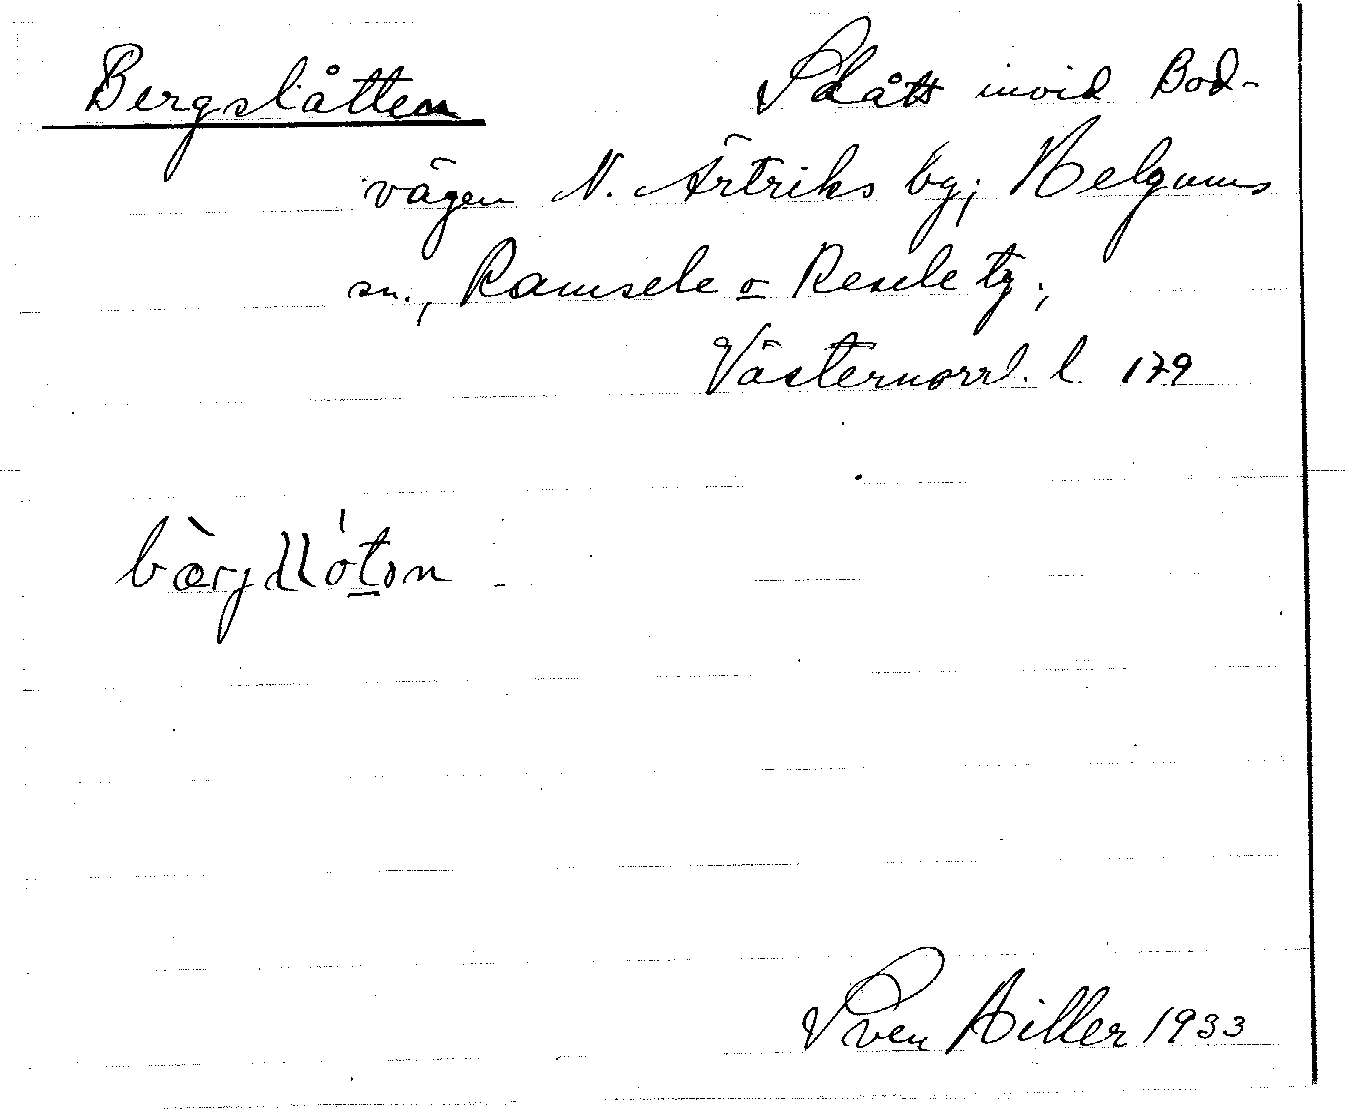 Bergslåtten Slått invid Bod-
vägen N. Ärtriks by; Helgums
sn., Ramsele o Resele tg.,
Västernorrl. l. 179
Sven Hiller 1933